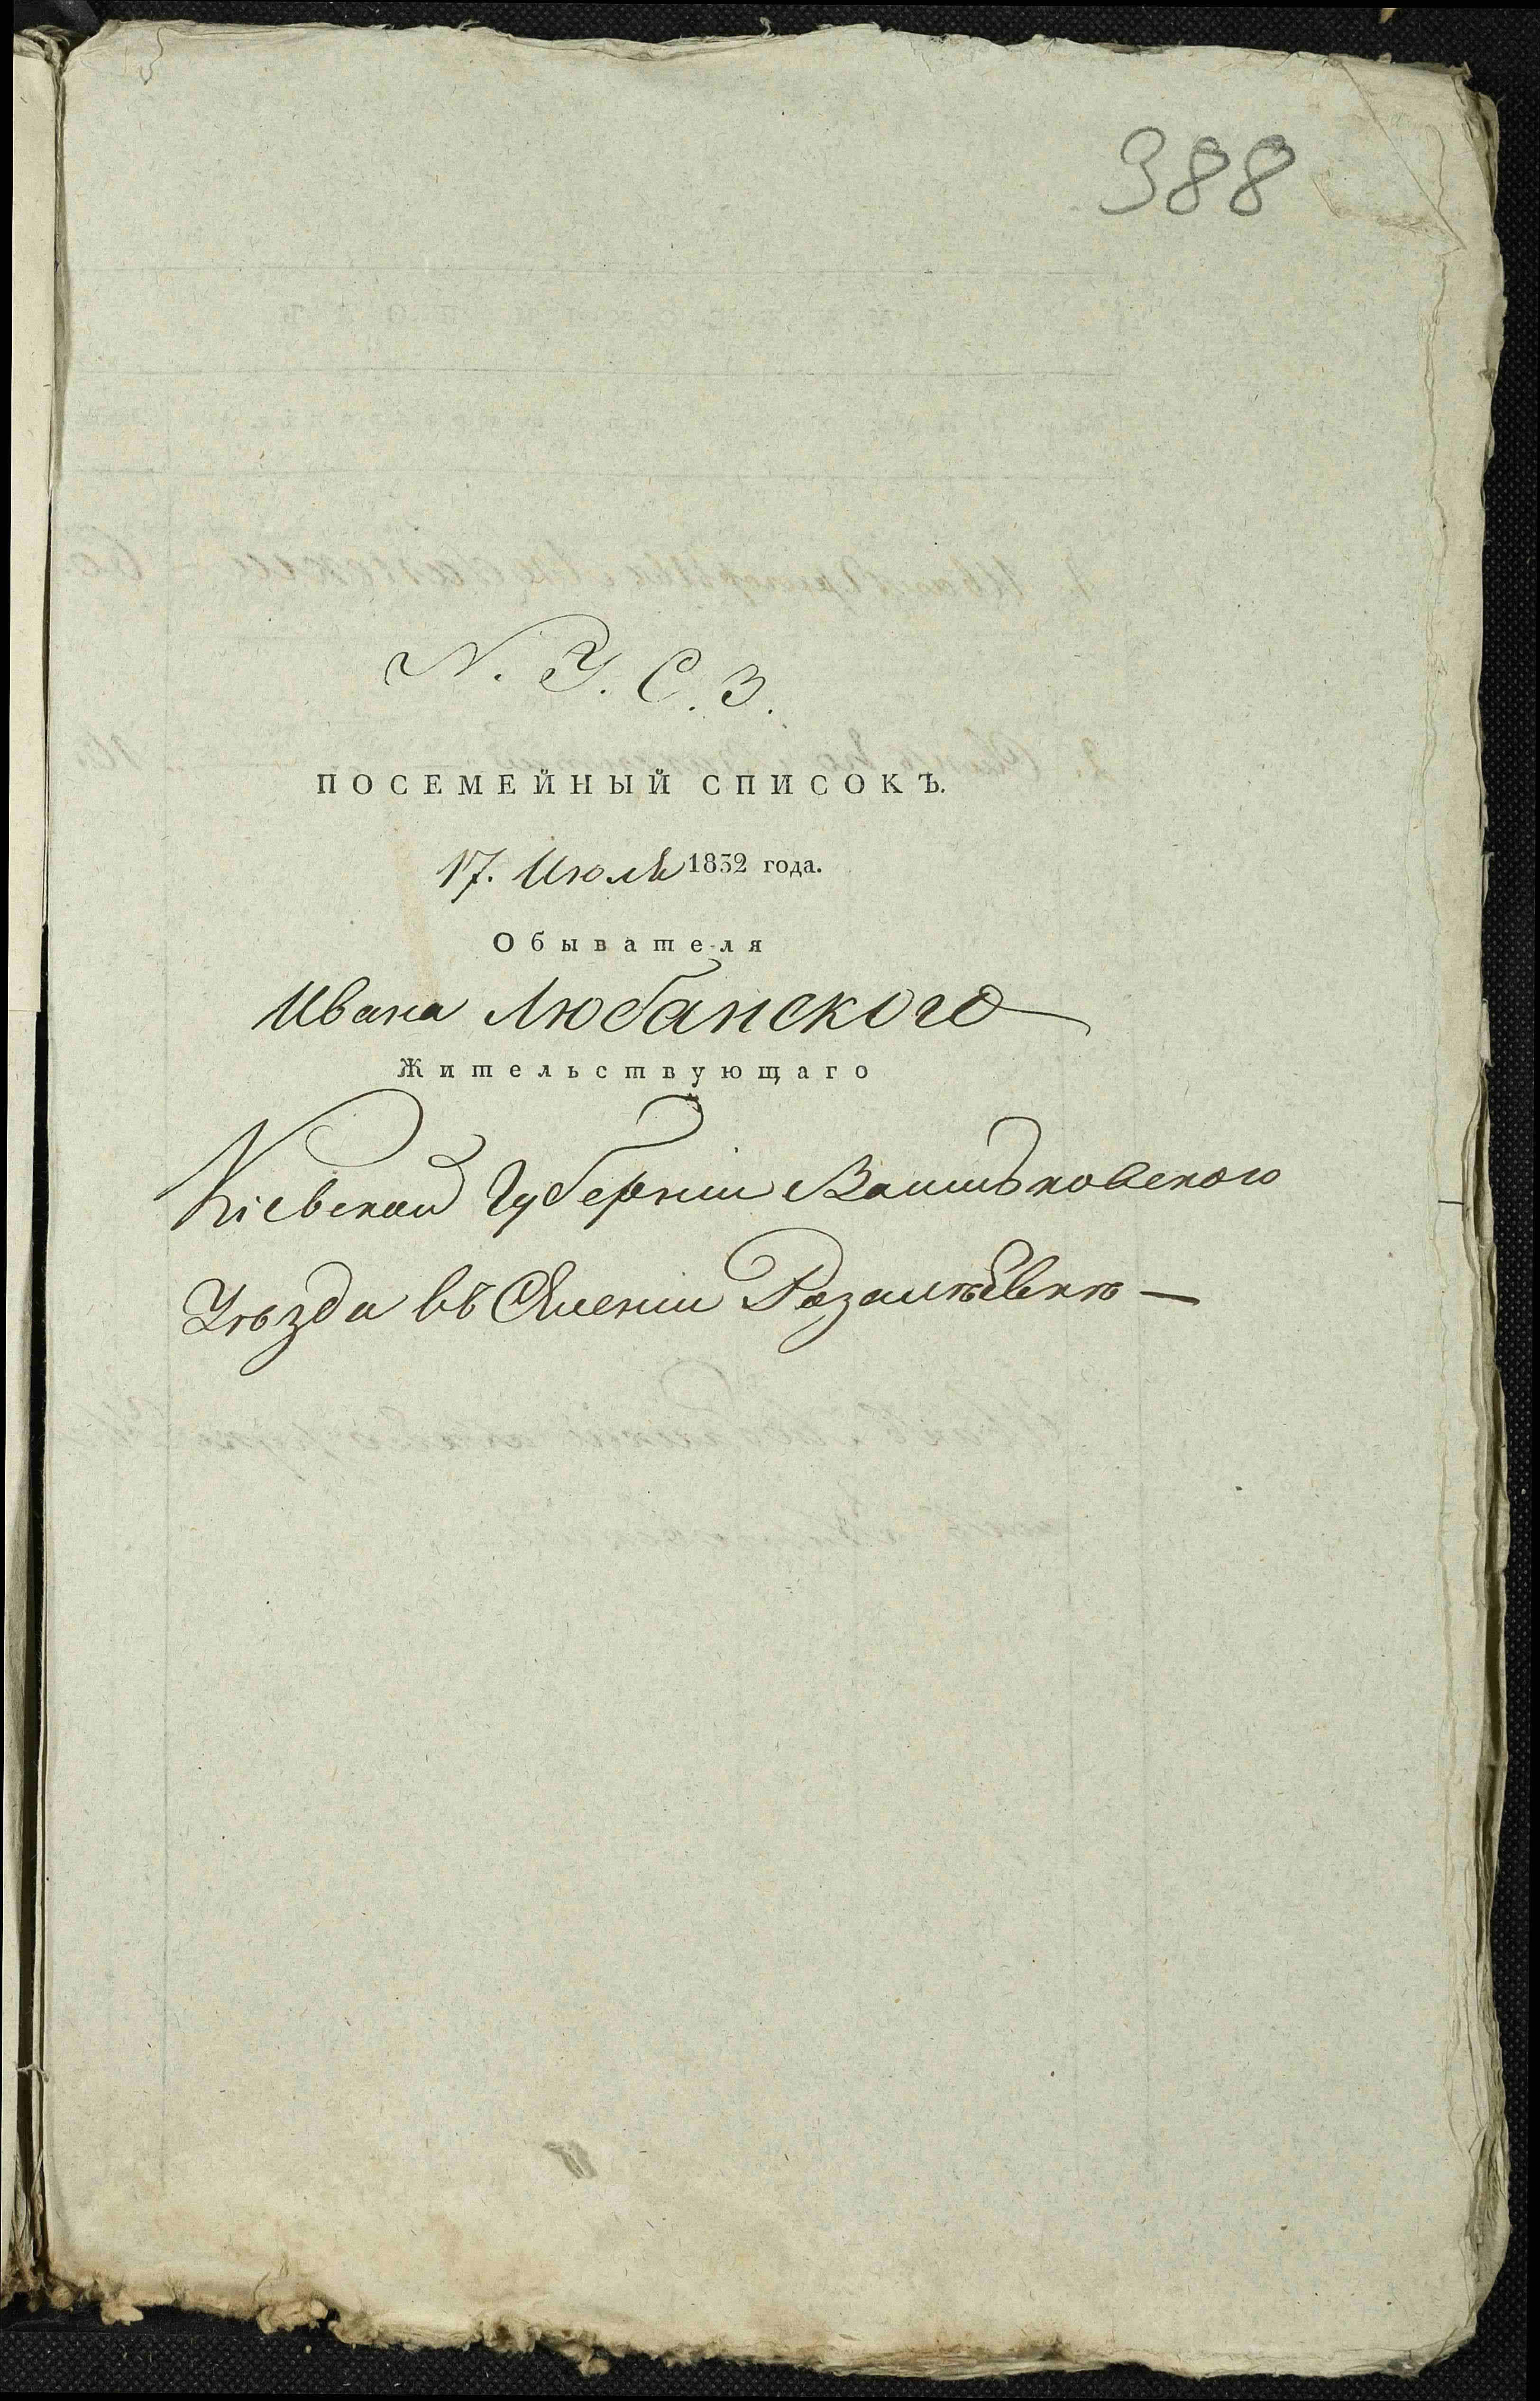 388
N. У. С. 3.
ПОСЕМЕЙНЫЙ СПИСОКЪ.
17. Июля 1832 года.
Обывателя
Ивана Любанского
Жительствующаго
Кіевской Губерніи Васильковского
Уѣзда въ Селеніи